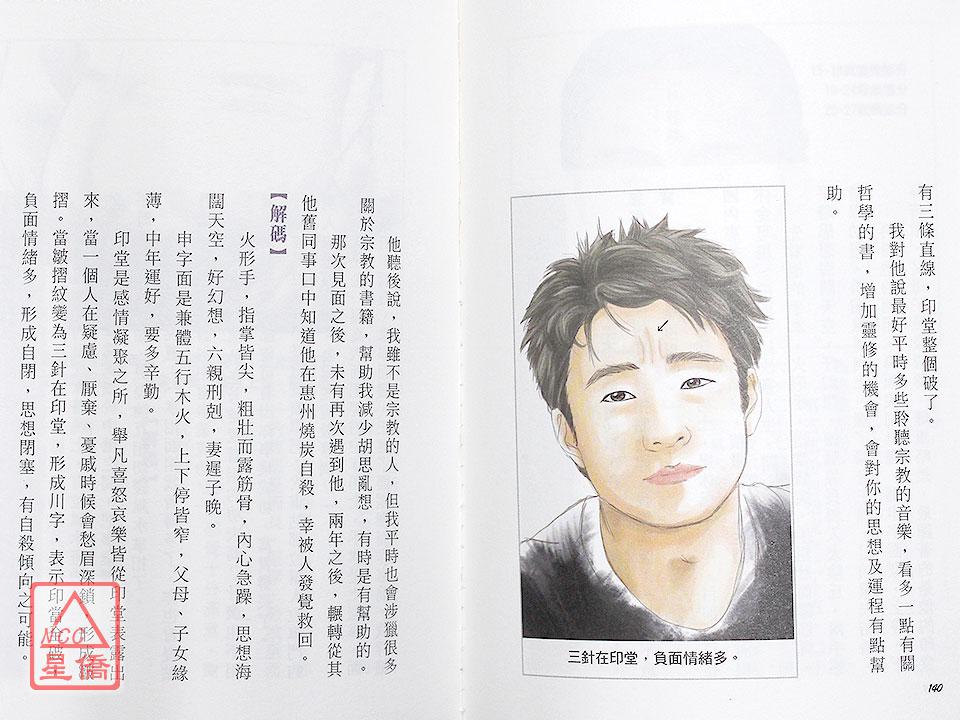 有三條直線，印堂整個破了。
我對他說最好平時多些聆聽宗教的音樂，看多一點有關
哲學的書，增加靈修的機會，會對你的思想及運程有點幫
助。
三針在印堂，負面情緒多。
140
他聽後說，我雖不是宗教的人，但我平時也會涉獵很多
關於宗教的書籍，幫助我減少胡思亂想，有時是有幫助的。
那次見面之後，未有再次遇到他，兩年之後，輾轉從其
他舊同事口中知道他在惠州燒炭自殺，幸被人發覺救回。
【解碼】
火形手，指掌皆尖，粗壯而露筋骨，內心急躁，思想海
闊天空，好幻想，六親刑剋，妻遲子晚。
申字面是兼體五行木火，上下停皆窄，父母、子女緣
薄，中年運好，要多辛勤。
印堂是感情凝聚之所，舉凡喜怒哀樂皆從印堂表露出
來，當一個人在疑慮、厭棄、憂戚時候會愁眉深鎖，形成皺
摺。當皺摺紋變為三針在印堂，形成川字，表示印當全破，
負面情緒多，形成自閉，思想閉塞，有自殺傾向之可能。
NCC
星僑